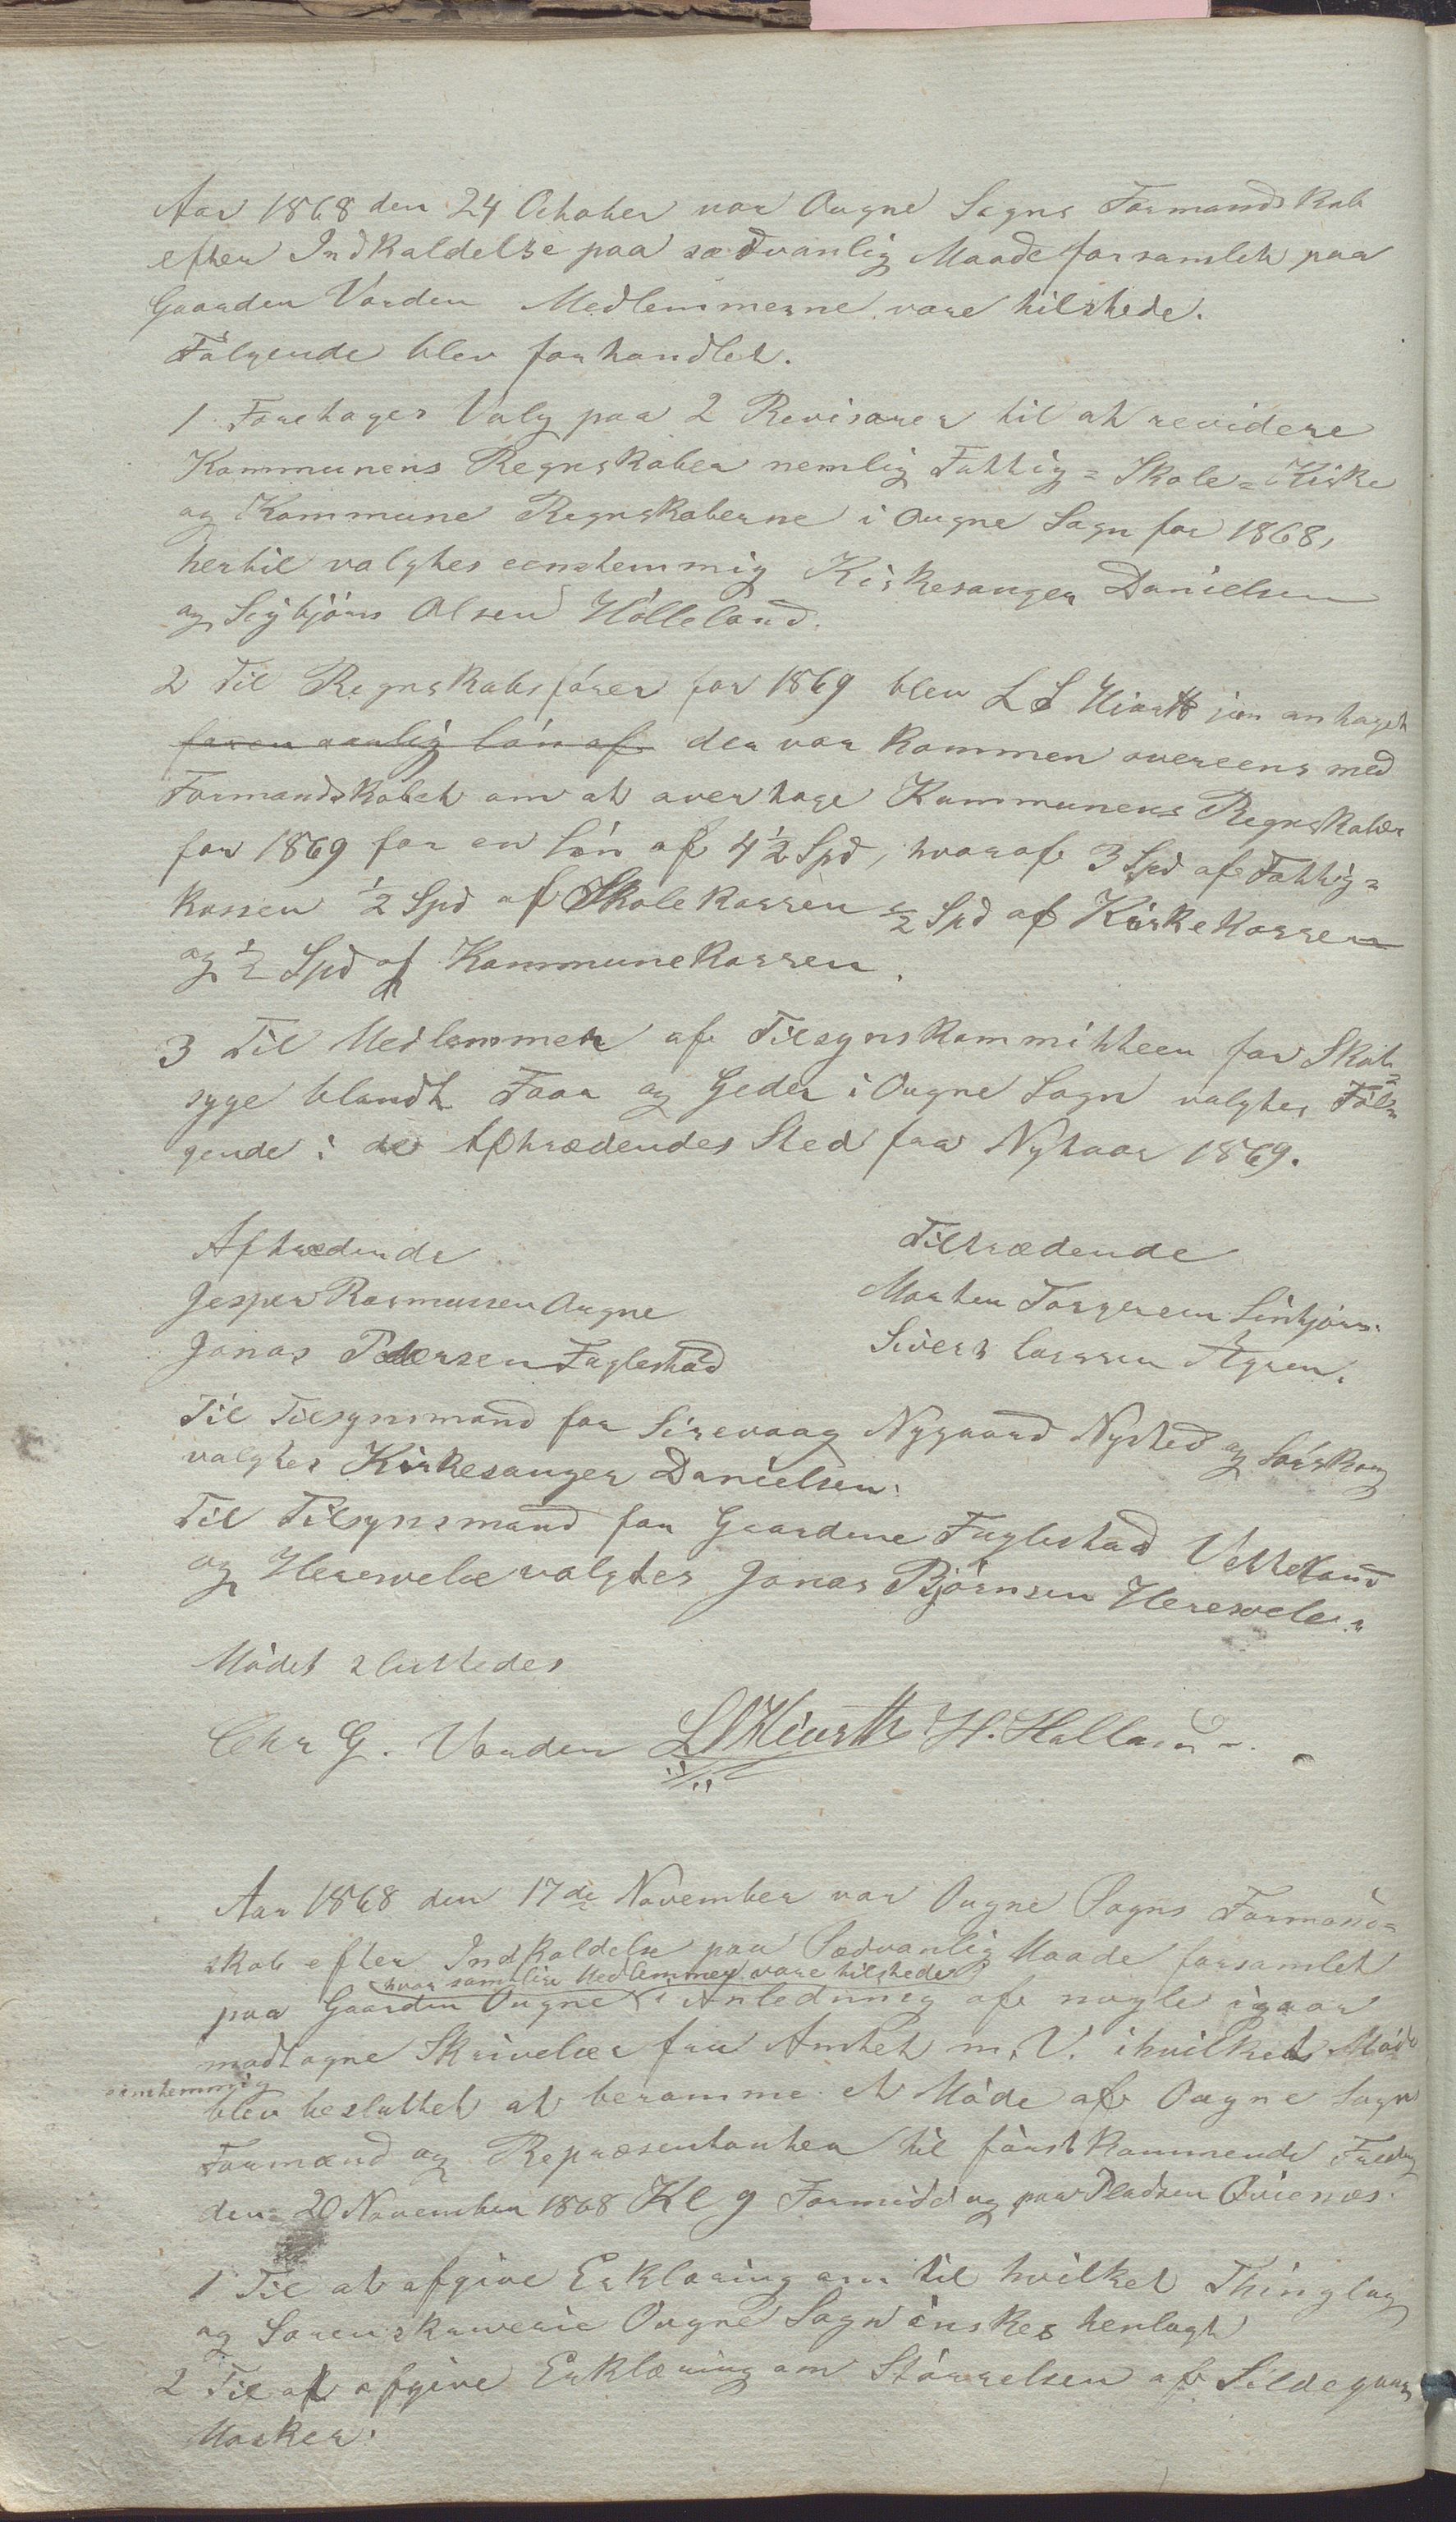 Aar 1868 den 24 October var Ougne Sogns Formandskab
efter Indkaldelse paa sædvanlig Maade forsamlet paa
Gaarden Varden Medlemmerne vare tilstede.
Følgende blev forhandlet.
1 Foretoges Valg paa 2 Revisorer til at revidere
Kommunens Regnskaber nemlig Fattig= Skole= Kirke
og Kommune Regnskaberne i Ougne Sogn for 1868,
hertil valgtes eenstemmig Kirkesanger Danielsen
og Sigbjörn Olsen Hölleland.
2 Til Regnskabsförer for 1869 blev L S Hiorth jun antaget
for en aarlig lön af der var kommen overeens med
Formandskabet om at overtage Kommunens Regnskaber
for 1869 for en lön af 4 1/2 Spd, hvoraf 3 Spd af Fattig=
kassen 1/2 Spd af Skolekassen 1/2 Spd af Kirkekassen
og 1/2 Spd af Kommunekassen.
3 Til Medlemmer af Tilsynskommitteen for Skab=
syge blandt Faar og Geder i Ougne Sogn valgtes Föl=
gende i de Aftrædendes Sted fra Nytaar 1869.
Aftrædende
Tiltrædende
Jesper Rasmussen Ougne
Morten Torgersen Sinhjörn.
Jonas Pedersen Fuglestad
Sivert Larssen
Til Tilsynsmand for Sirevaag Nygaard Nysted og
valgtes Kirkesanger Danielsen.
Til Tilsynsmand for Gaardene Fuglestad Vetteland
og Herevele valgtes Jonas Björnsen Herevele.
Mödet sluttedes
Chr G. Varden LSHiorth H. Helland
Aar 1868 den 17de November var Ougne Sogns Formand=
skab efter Indkaldelse paa Sædvanlig Maade forsamlet
hvor samtlige Medlemmer vare tilstede
paa Gaarden Ougne i Anledning af nogle igaar
modtagne Skrivelser fra Amtet m. V. i hvilket Möde
eenstemmig
blev besluttet at beramme et Möde af Ougne Sogn
Formænd og Repræsentanter til förstkommende Fredag
den 20 November 1868 Kl 9 Formiddag paa Pladsen Qvienæs.
1 Til at afgive Erklæring om til hvilket Thinglag
og Sorenskriverie Ougne Sogn önskes henlagt
2 Til at afgive Erklæring om Störrelsen af Sildegarns
Masker.